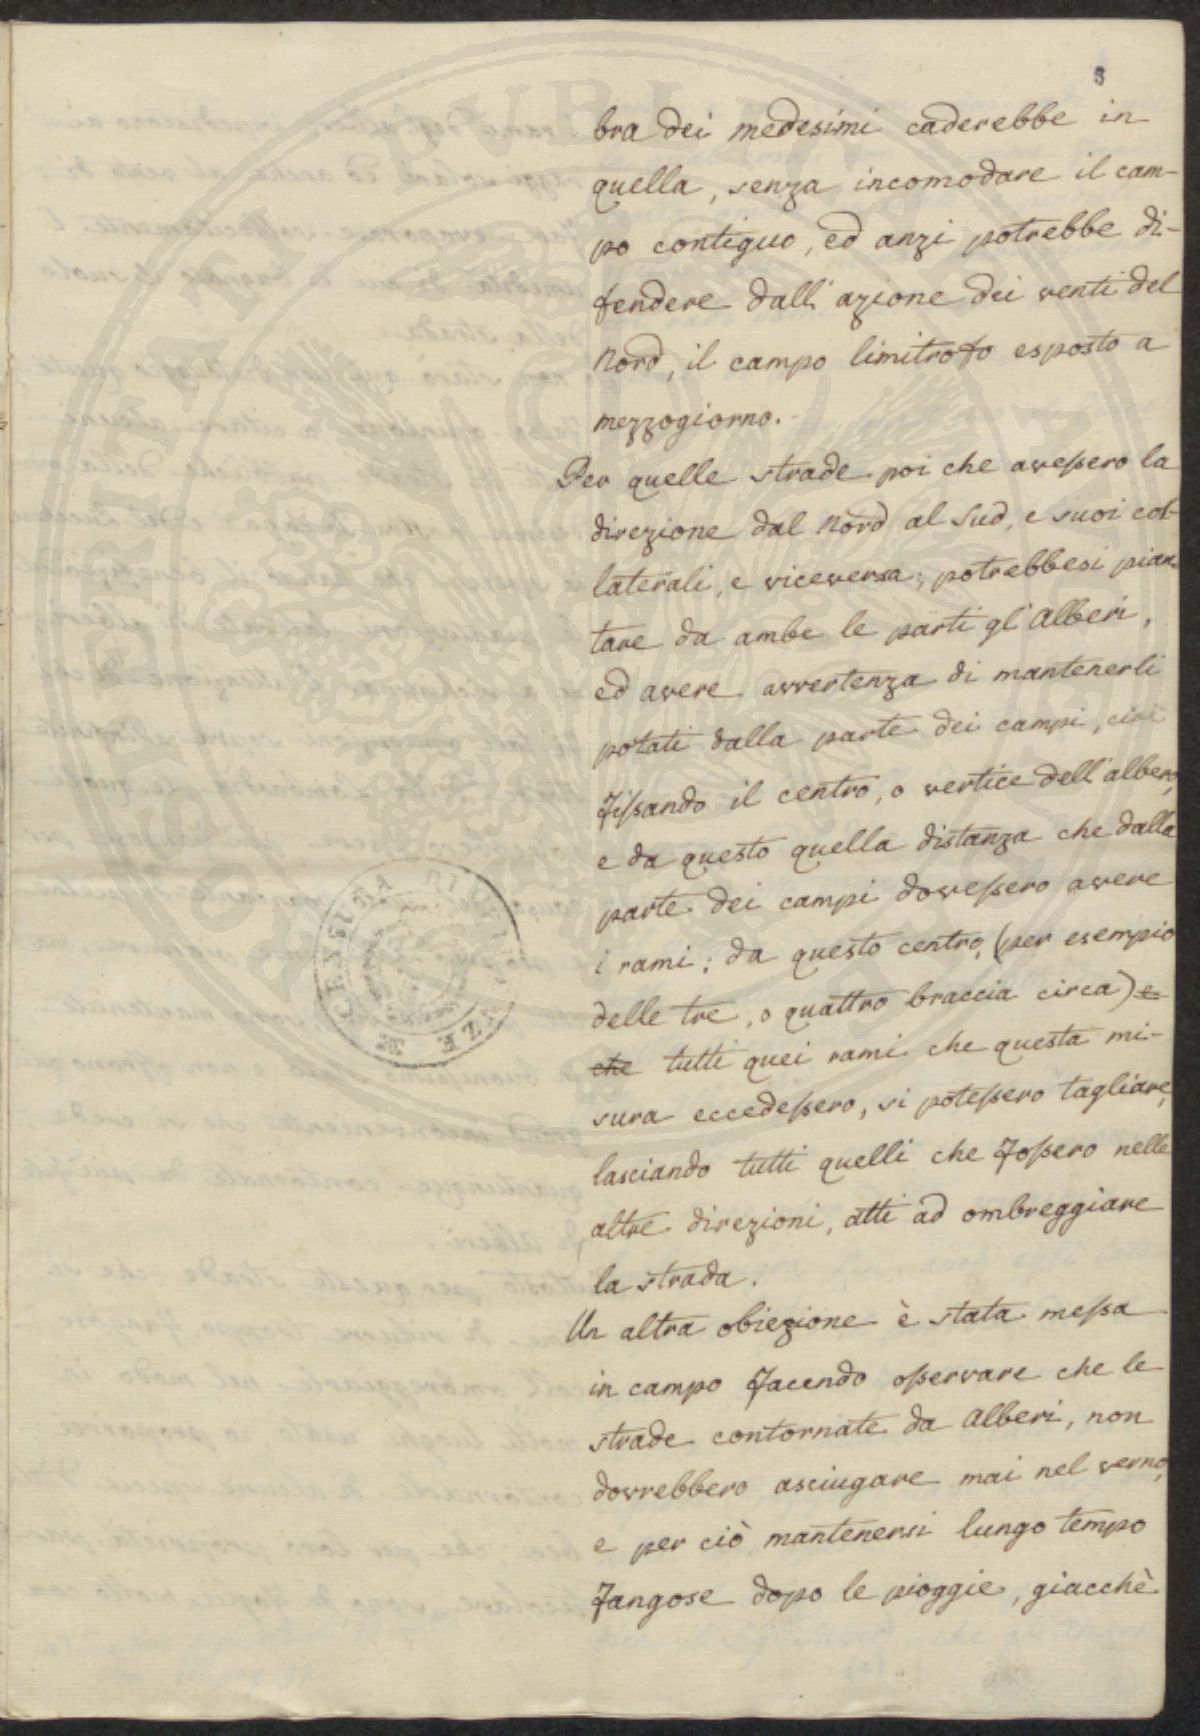 3
bra dei medesimi caderebbe in
quella, senza incomodare il cam-
po contiguo, ed anzi potrebbe di-
fendere dall'azione dei venti del
Nord, il campo limitrofo esposto a
mezzogiorno.
Per quelle strade poi che avessero la
direzione dal Nord al Sud, e suoi col-
laterali, e viceversa; potrebbesi pian-
tare da ambe le parti gl'Alberi,
ed avere avvertenza di mantenerli
potati dalla parte dei campi, cioè
fissando il centro, o vertice dell'albero,
e da questo quella distanza che dalla
parte dei campi dovessero avere
i rami; da questo centro, (per esempio
delle tre, o quattro braccia circa) e
che tutti quei rami che questa mi-
sura eccedessero, si potessero tagliare,
lasciando tutti quelli che fossero nelle
altre direzioni, atti ad ombreggiare
la strada.
Un altra obiezione è stata messa
in campo facendo osservare che le
strade contornate da Alberi, non
dovrebbero asciugare mai nel verno,
e per ciò mantenersi lungo tempo
fangose dopo le pioggie, giacchè